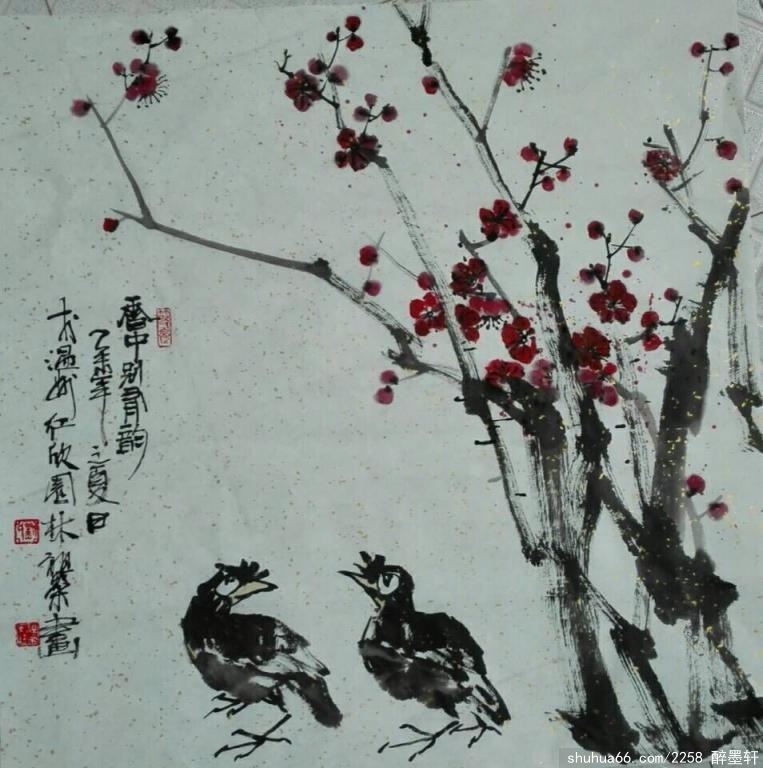 香中别有韵
乙未年之夏日
于温州仁欣園林祖榮畫
shuhua66.com/2258 醉墨轩